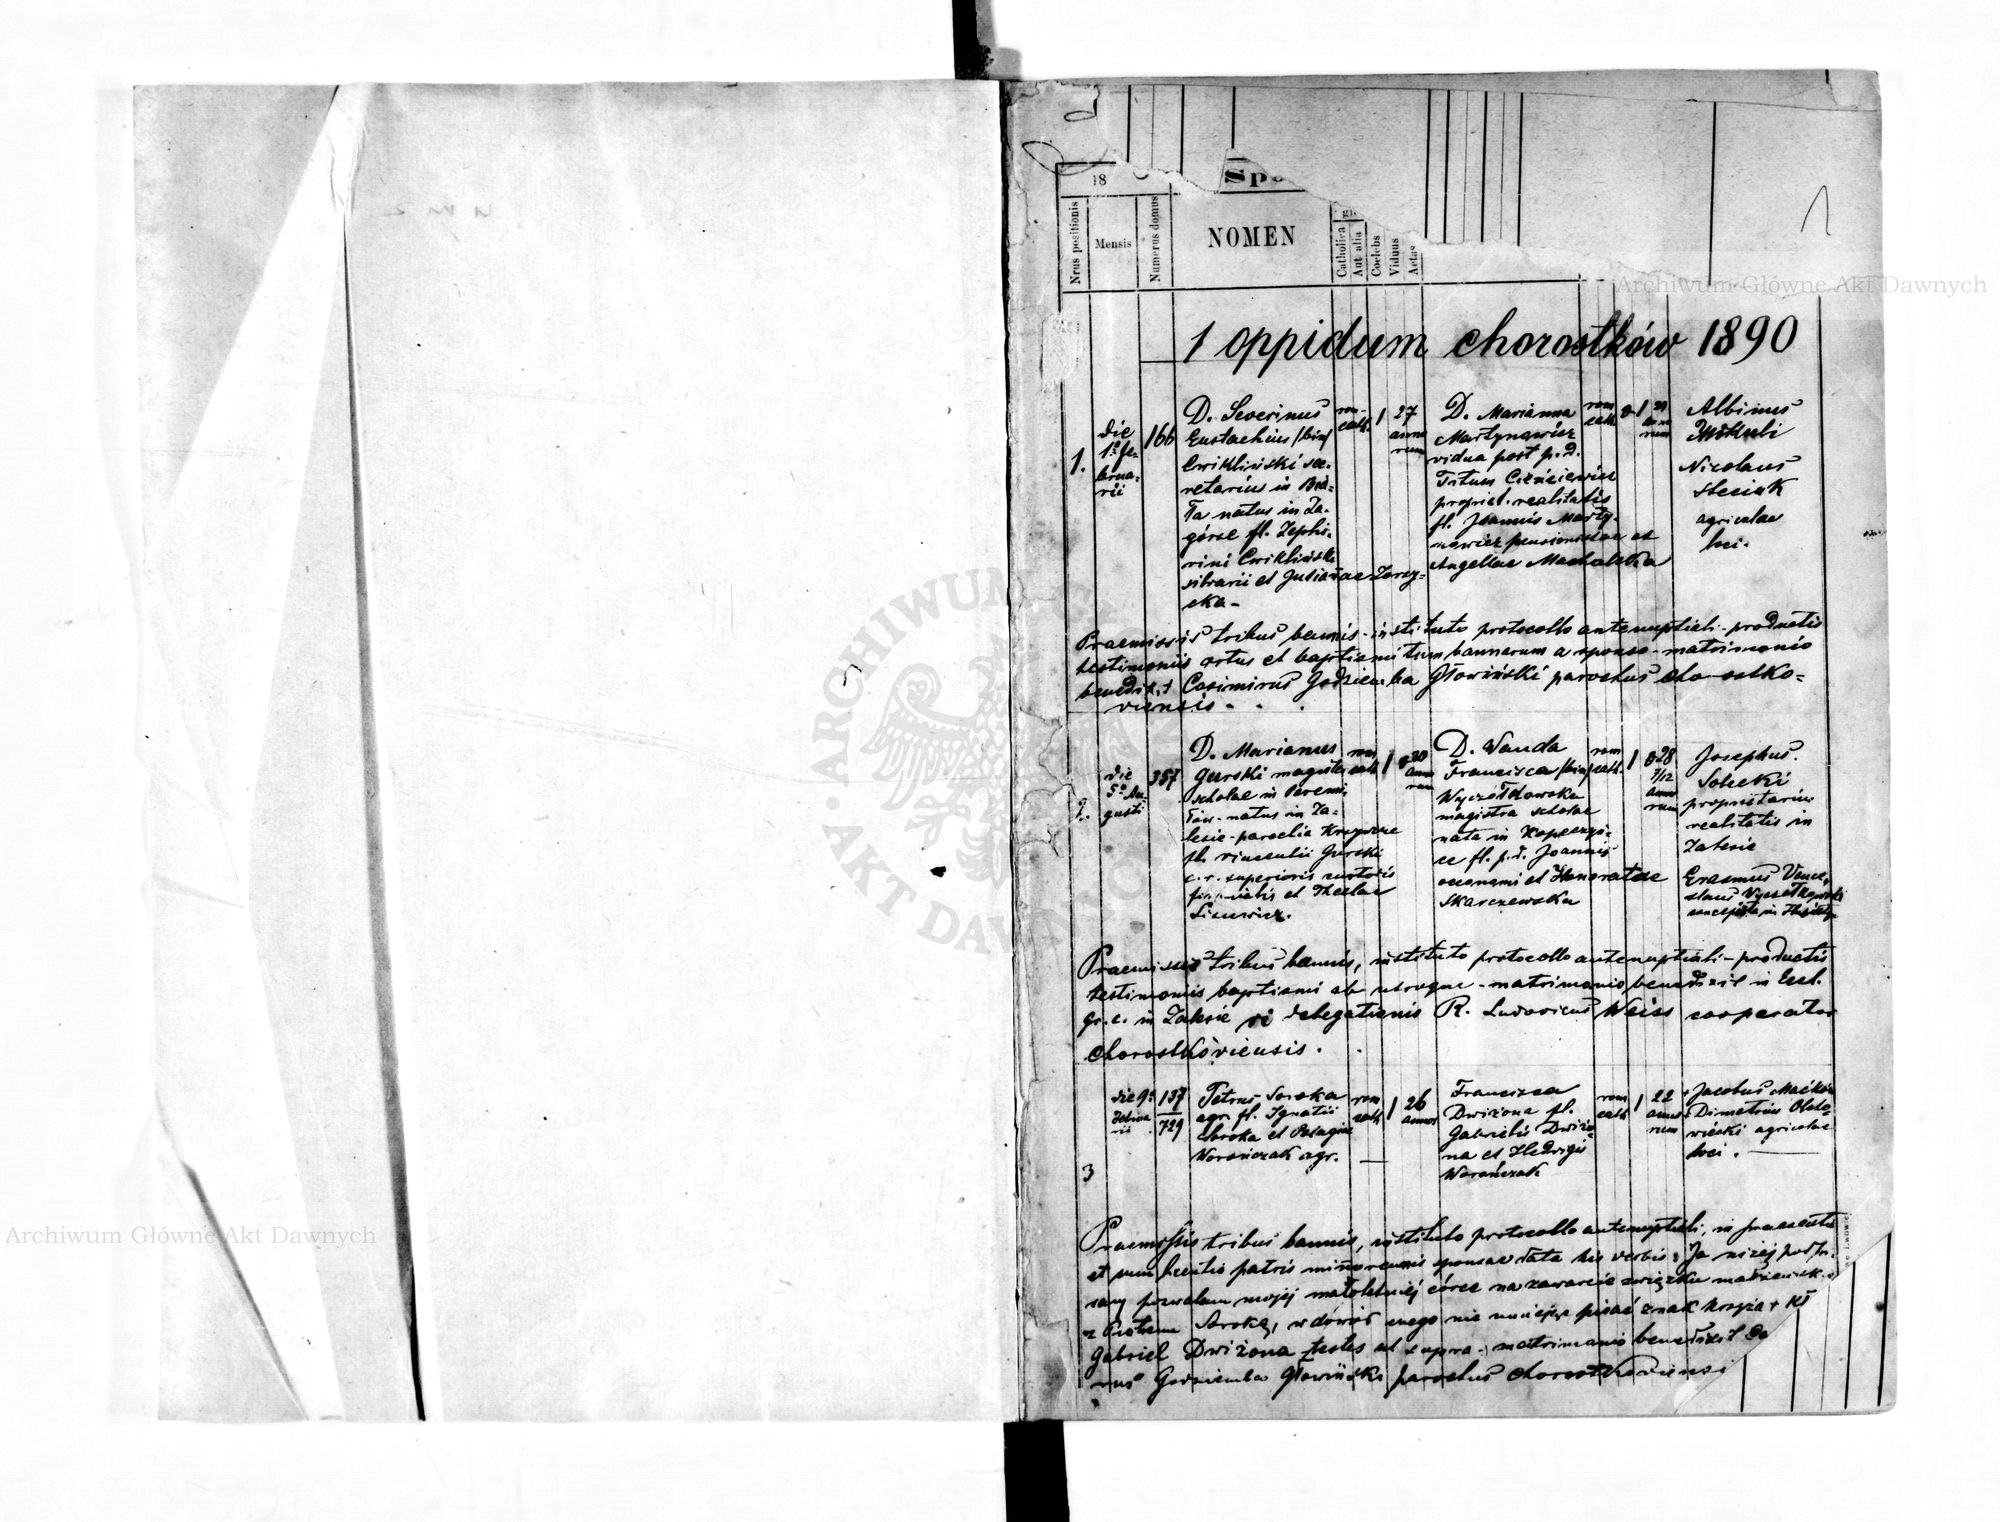 18
Spo
Nrus positionis
Mensis
Numerus domus
NOMEN
Catholica
Aut alia
Coelebs
Viduus
Aetas
1
Archiwum Główne Akt Dawnych
1 oppidum chorostków 1890
1.
die
1ª fe-
brua-
rii
166
D. Severinus
Eustachius /bin/
Cwikliński sec-
retarius in
Ta natus in Za-
górze fl. Zephi-
rini Cwikliński
et Julianae Zarzy-
cka -
rom
cath.
1
27
anno
rum
D. Marianna
Martynowicz
vidua post p. d.
Titum
propriet. realitatis
fl. Joannis Marty-
nowicz pensionistae et
Angellae Machalska
rom
cath.
1
anno
rum
Albinus
Mikuli
Nicolaus
Steciuk
agricolae
loci.
Praemissis tribus bannis - instituto protocollo antenuptiali - productis
testimoniis ortus et baptismi tum bannorum a sponso - matrimonio
benedixit Casimirus Godziemba Głowiński parochus chorostko=
viensis.
2.
die
5ª Au-
gusti
357
D. Marianus
Gurski magister
scholae in Peremi-
łów - natus in Za-
lesie - paroecia Krzywcze
fl. vincentii Gurski
c. r. superioris custodis
et Theclae
rom
cath.
1
30
anno
rum
D. Wanda
Francisca /bin/
Wyczółkowska
magistra scholae
nata in Kopeczyń-
ce fl. p. d. Joannis
oeconomi et Honoratae
Skarczewska
rom
cath.
1
28
7/12
anno
rum
Josephus
Sobecki
proprietarius
realitatis in
Zalesie
Erasmus Vence-
slaus Wyczółkowski
Praemissis tribus bannis, instituto protocollo antenuptiali - productis
testimoniis baptismi ab utroque - matrimonio benedixit in Eccl.
gr. c. in Zalesie vi delegationis R. Ludovicus Weiss cooperator
chorostkoviensis.
3
die 9ª
Februa
rii
137
729
Petrus Soroka
agr. fl. Ignatii
Soroka et Pelagiae
Worończak agr.
rom
cath
1
26
annor
Francisca
Dwiżona fl.
Gabrielis Dwiżo-
na et Hedvigis
Worończak
rom
cath
1
22
anno
rum
Jacobus Maćków
Dimetrius Olsko-
wiecki agricolae
loci.
Praemissis tribus bannis, instituto protocollo antenuptiali, in praesentia
et cum licentia patris minorennis sponsae data his verbis: Ja niżej podpi-
sany pozwalam mojej małoletniej córce na zawarcie związku małżeńsk.
z Piotrem Soroką, w dowód czego nie umiejąc pisać znak krzyża +
Gabriel Dwiżona testes ut supra - matrimonio benedixit Ca
rus Godziemba Głowiński parochus chorostkoviensi
Archiwum Główne Akt Dawnych
ARCHIWUM GŁÓWNE AKT DAWNYCH